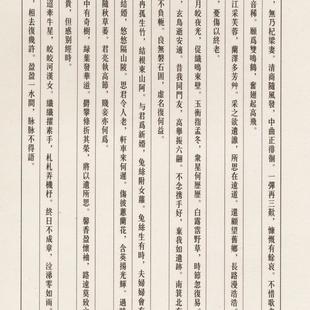 ，無乃杞梁妻。清商隨風發，中曲正徘徊。一彈再三歎，慷慨有餘哀。不惜歌
音稀。願爲雙鳴鶴，奮翅起高飛。
江采芙蓉，蘭澤多芳草。采之欲遺誰，所思在遠道。還顧望舊鄉，長路漫浩浩
憂傷以終老。
月皎夜光，促織鳴東壁。玉衡指孟冬，衆星何歷歷。白露霑野草，時節忽復易
，玄鳥逝安適。昔我同門友，高舉振六翮。不念攜手好，棄我如遺跡。南箕北
不負軛。良無磐石固，虛名復何益。
冉孤生竹，結根泰山阿。与君爲新婚，兔絲附女蘿。兔絲生有時，夫婦會有
結婚，悠悠隔山陂。思君令人老，軒車來何遲。傷彼蕙蘭花，含英揚光輝。過時
隨秋草萎。君亮執高節，賤妾亦何爲。
中有奇樹，綠葉發華滋。攀條折其榮，將以遺所思。馨香盈懷袖，路遠莫致
貴，但感別經時。
迢牽牛星，皎皎河漢女。纖纖擢素手，札札弄機杼。終日不成章，泣涕零如雨
，相去復幾許。盈盈一水間，脉脉不得語。